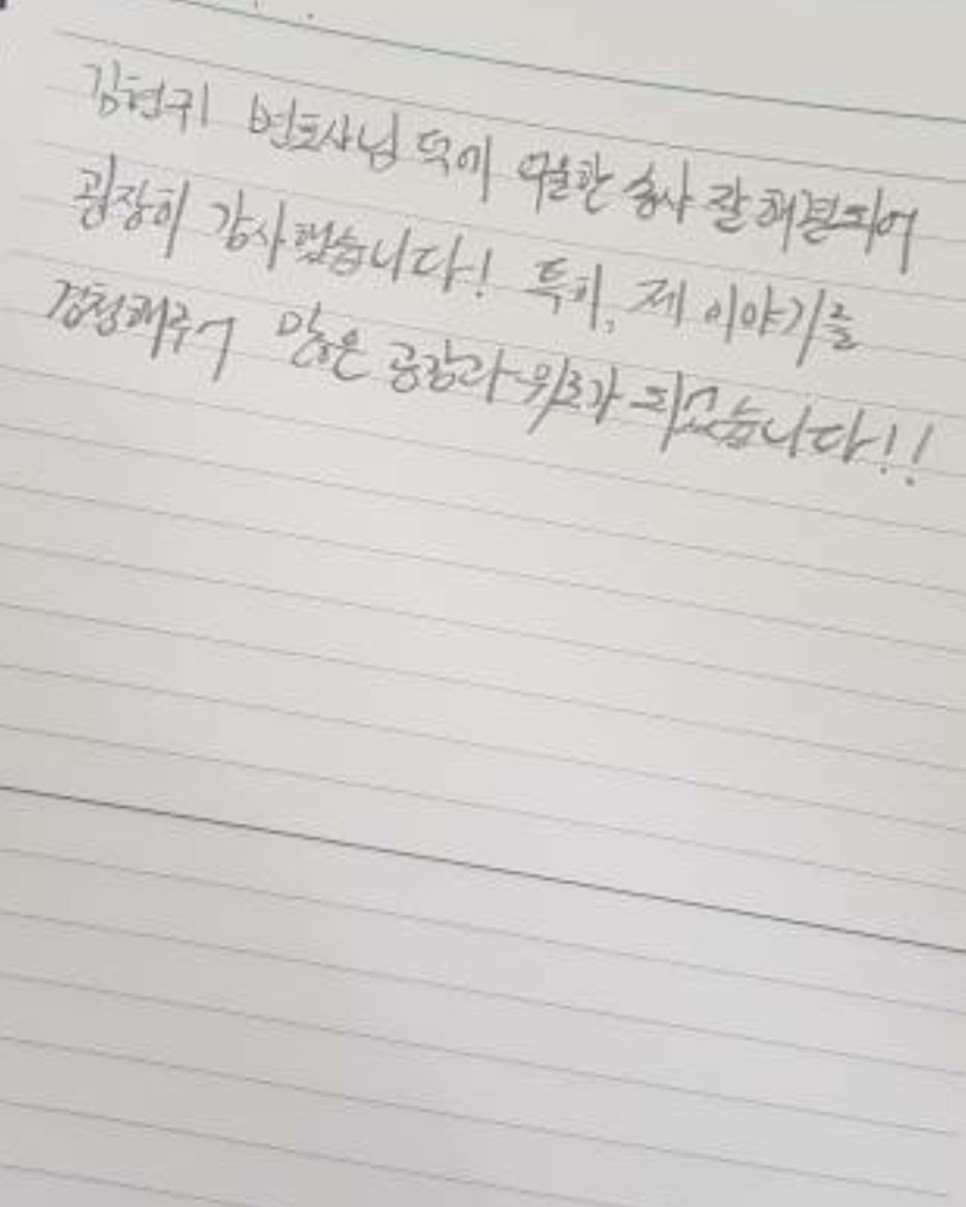 김현귀 변호사님 덕에 억울한 송사 잘 해결되어
굉장히 감사했습니다! 특히, 제 이야기를
경청해주어 많은 공감과 위로가 되었습니다!!